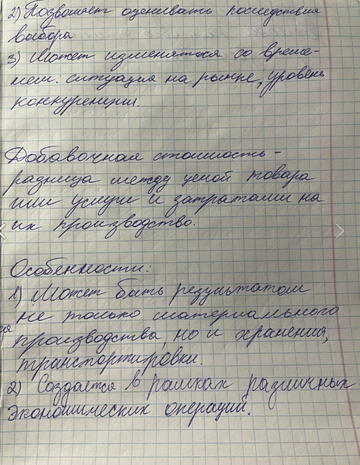 2) Позволяет оценивать последствия
выбора
3) Может изменяться со време-
нем. ситуация на рынке, уровень
конкуренции.
Добавочная стоимость -
разница между ценой товара
или услуги и затратами на
их производство.
Особенности:
1) Может быть результатом
не только материального
производства, но и хранения,
транспортировки.
2) Создаётся в рамках различных
экономических операций.